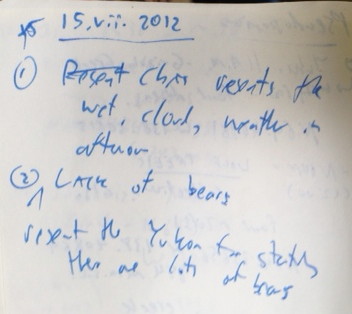 15.vii.2012
① Resent Chris resents the
wet, cloud, weather in
afternoon
② Lack of bears
resent the Yukon for stating
there are lots of bears